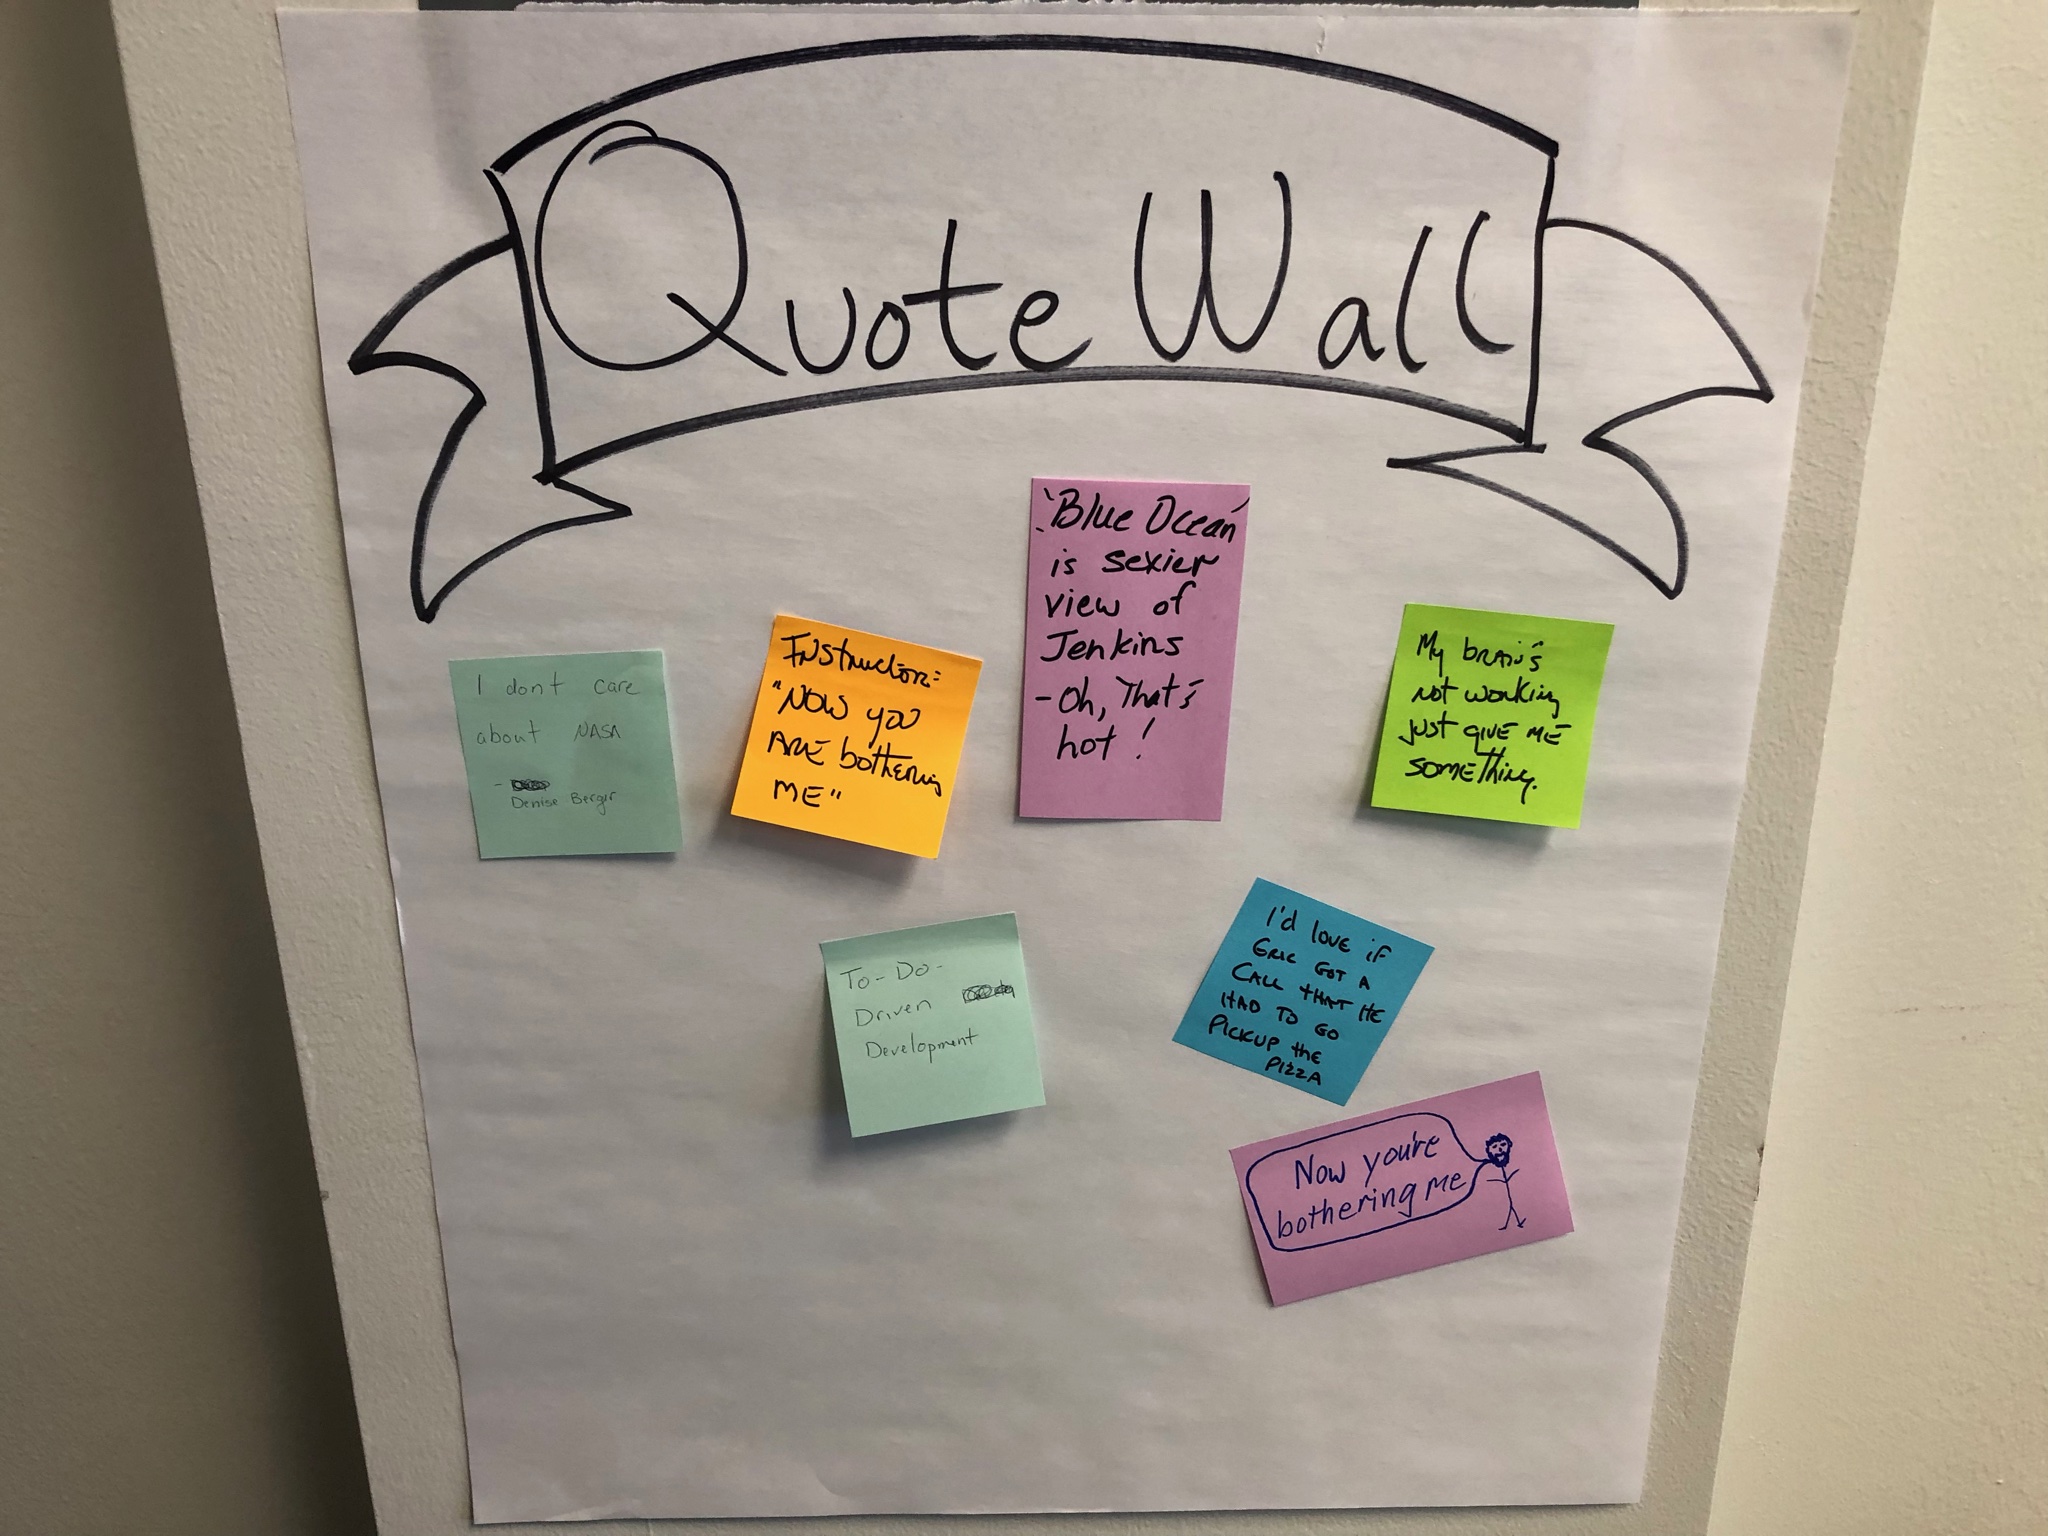 Quote Wall
I dont care
about NASA
-
Denise Bergir
Instructor:
"Now you
ARE bothering
ME"
"Blue Ocean"
is sexier
view of
Jenkins
-Oh, That's
hot!
My brain's
not working
just give me
something.
To-Do-
Driven
Development
I'd love if
Eric got a
call that he
had to go
pickup the
pizza
Now you're
bothering me